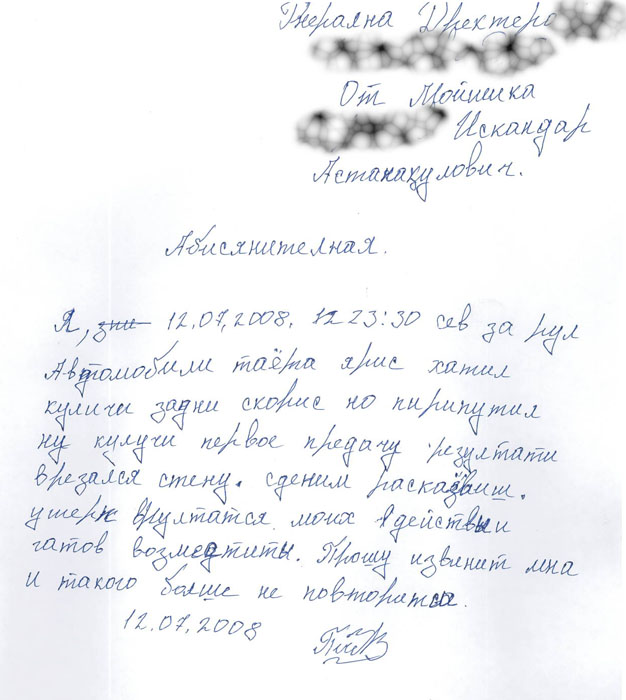 Генерална Дректеро
От Мойшика
Искандар
Астанакулович.
Абисянителная.
Я, 12.07.2008. 12 23:30 сев за рул
Автомобили таёта ярис хатил
куличи задни скорис но пирипутил
ну кулучи первое предачу резултати
врезался стену. сделим расказвиш.
ушерп врултатся моих действи
гатов возмедтиты. Прошу извинит мна
и такого болше не повторитса.
12.07.2008